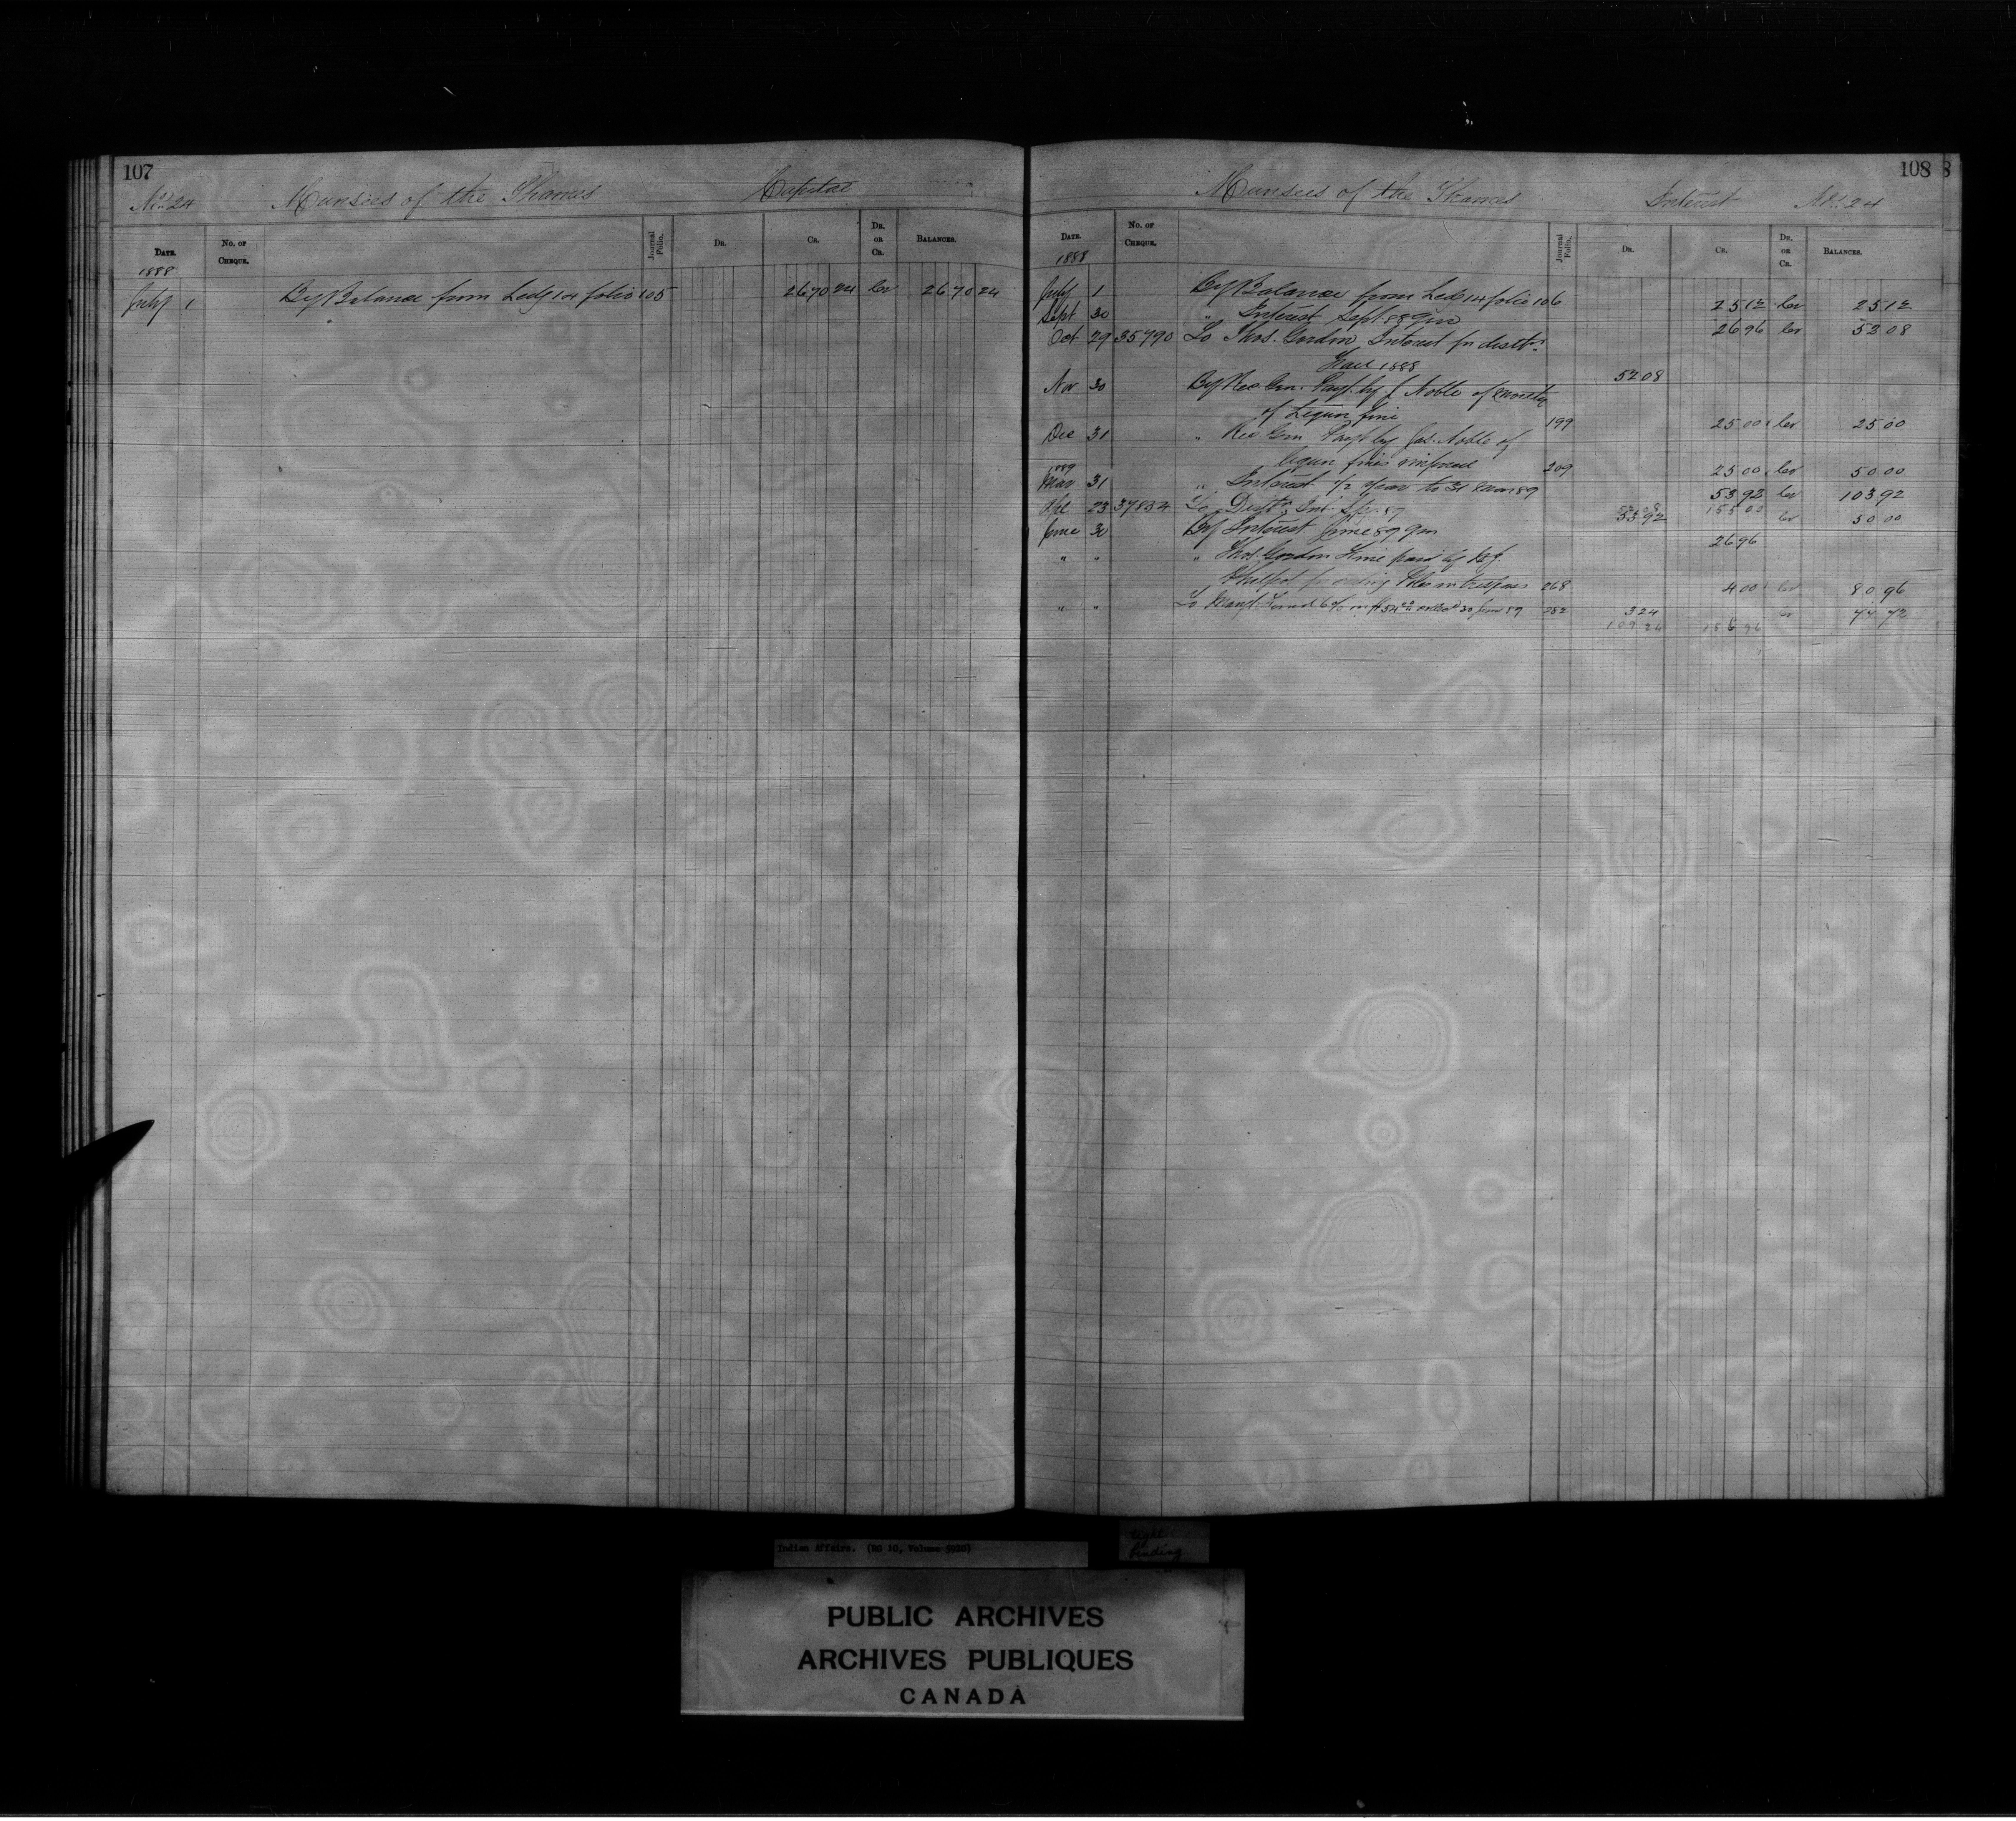 107
No. 24 Munsies of the Thames Capital
DATE. No. OF CHEQUE. Journal Folio. DR. CR. DR. OR CR. BALANCES.
1888
July 1 By Balance from Ledg 14 folio 105 2670 24 Cr 2670 24
108
Munsies of the Thames Interest No. 24
DATE. No. OF CHEQUE. Journal Folio. DR. CR. DR. OR CR. BALANCES.
1888
July 1 By Balance from Led 14 folio 106 25 12 Cr 25 12
Sept 30 " Interest Sept 88 qm 26 96 Cr 52 08
Oct 29 35790 To Thos. Gordon Interest for distn
1888 52 08
Nov 30 By Rec Gen. Payt by J Noble of
of Liquor fine 199 25 00 Cr 25 00
Dec 31 " Rec Gen Payt by Jas. Noble of
liquor fines imposed 209 25 00 Cr 50 00
1889
Mar 31 " Interest 1/2 year to 31 Mar 89 53 92 Cr 103 92
Apl 23 37834 To Distn Int. Spr 89 53 92 Cr 50 00
June 30 By Interest June 89 qm 26 96
" " " Thos. Gordon Fine paid by
for cutting Poles in trespass 268 4 00 Cr 80 96
" " To Mangt. Fund 6% on $54.00 30 June 89 282 3 24 Cr 77 72
109 24 186 96
Indian Affairs. (RG 10, Volume 5920)
tight
binding
PUBLIC ARCHIVES
ARCHIVES PUBLIQUES
CANADA